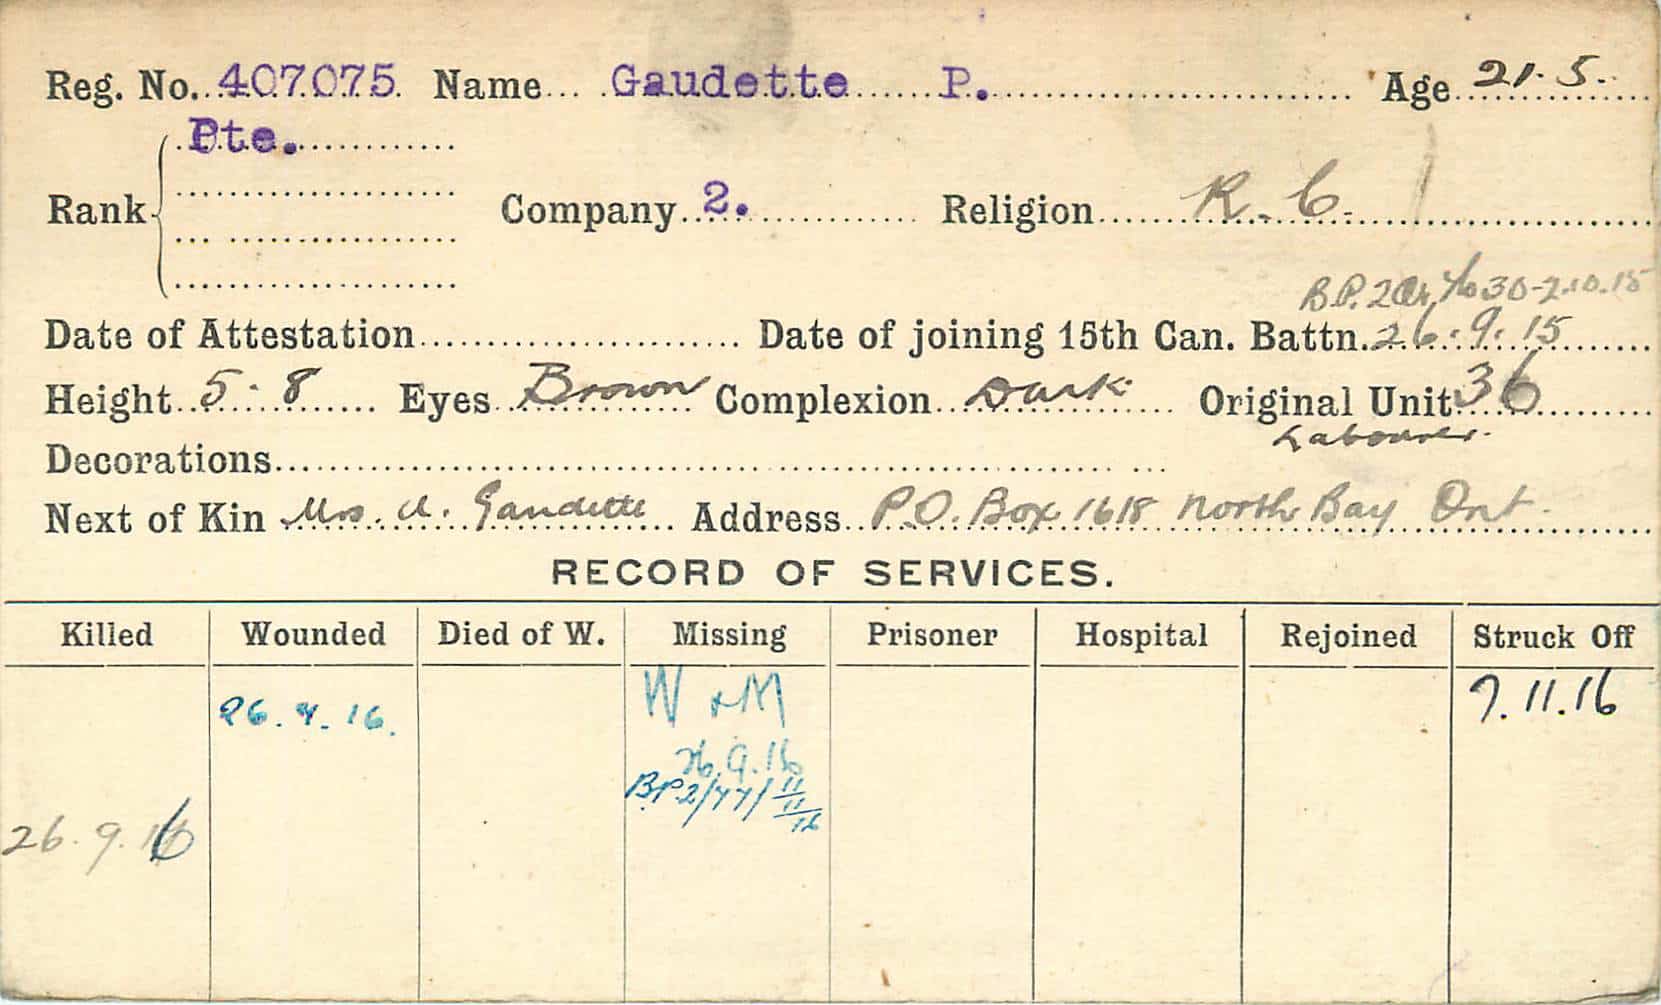 Reg. No. 407075 Name Gaudette P. Age 21.5.
Pte.
Rank Company 2. Religion R.C.
30-2.10.15
Date of Attestation Date of joining 15th Can. Battn. 26.9.15
Height 5.8 Eyes Brown Complexion Dark Original Unit 36
Labourer.
Decorations
Next of Kin Mrs. A. Gaudette Address P.O. Box 1618 North Bay Ont.
RECORD OF SERVICES.
Killed Wounded Died of W. Missing Prisoner Hospital Rejoined Struck Off
W & M 7.11.16
26.9.16.
26.9.16
BP2/77/11/11/16
26.9.16